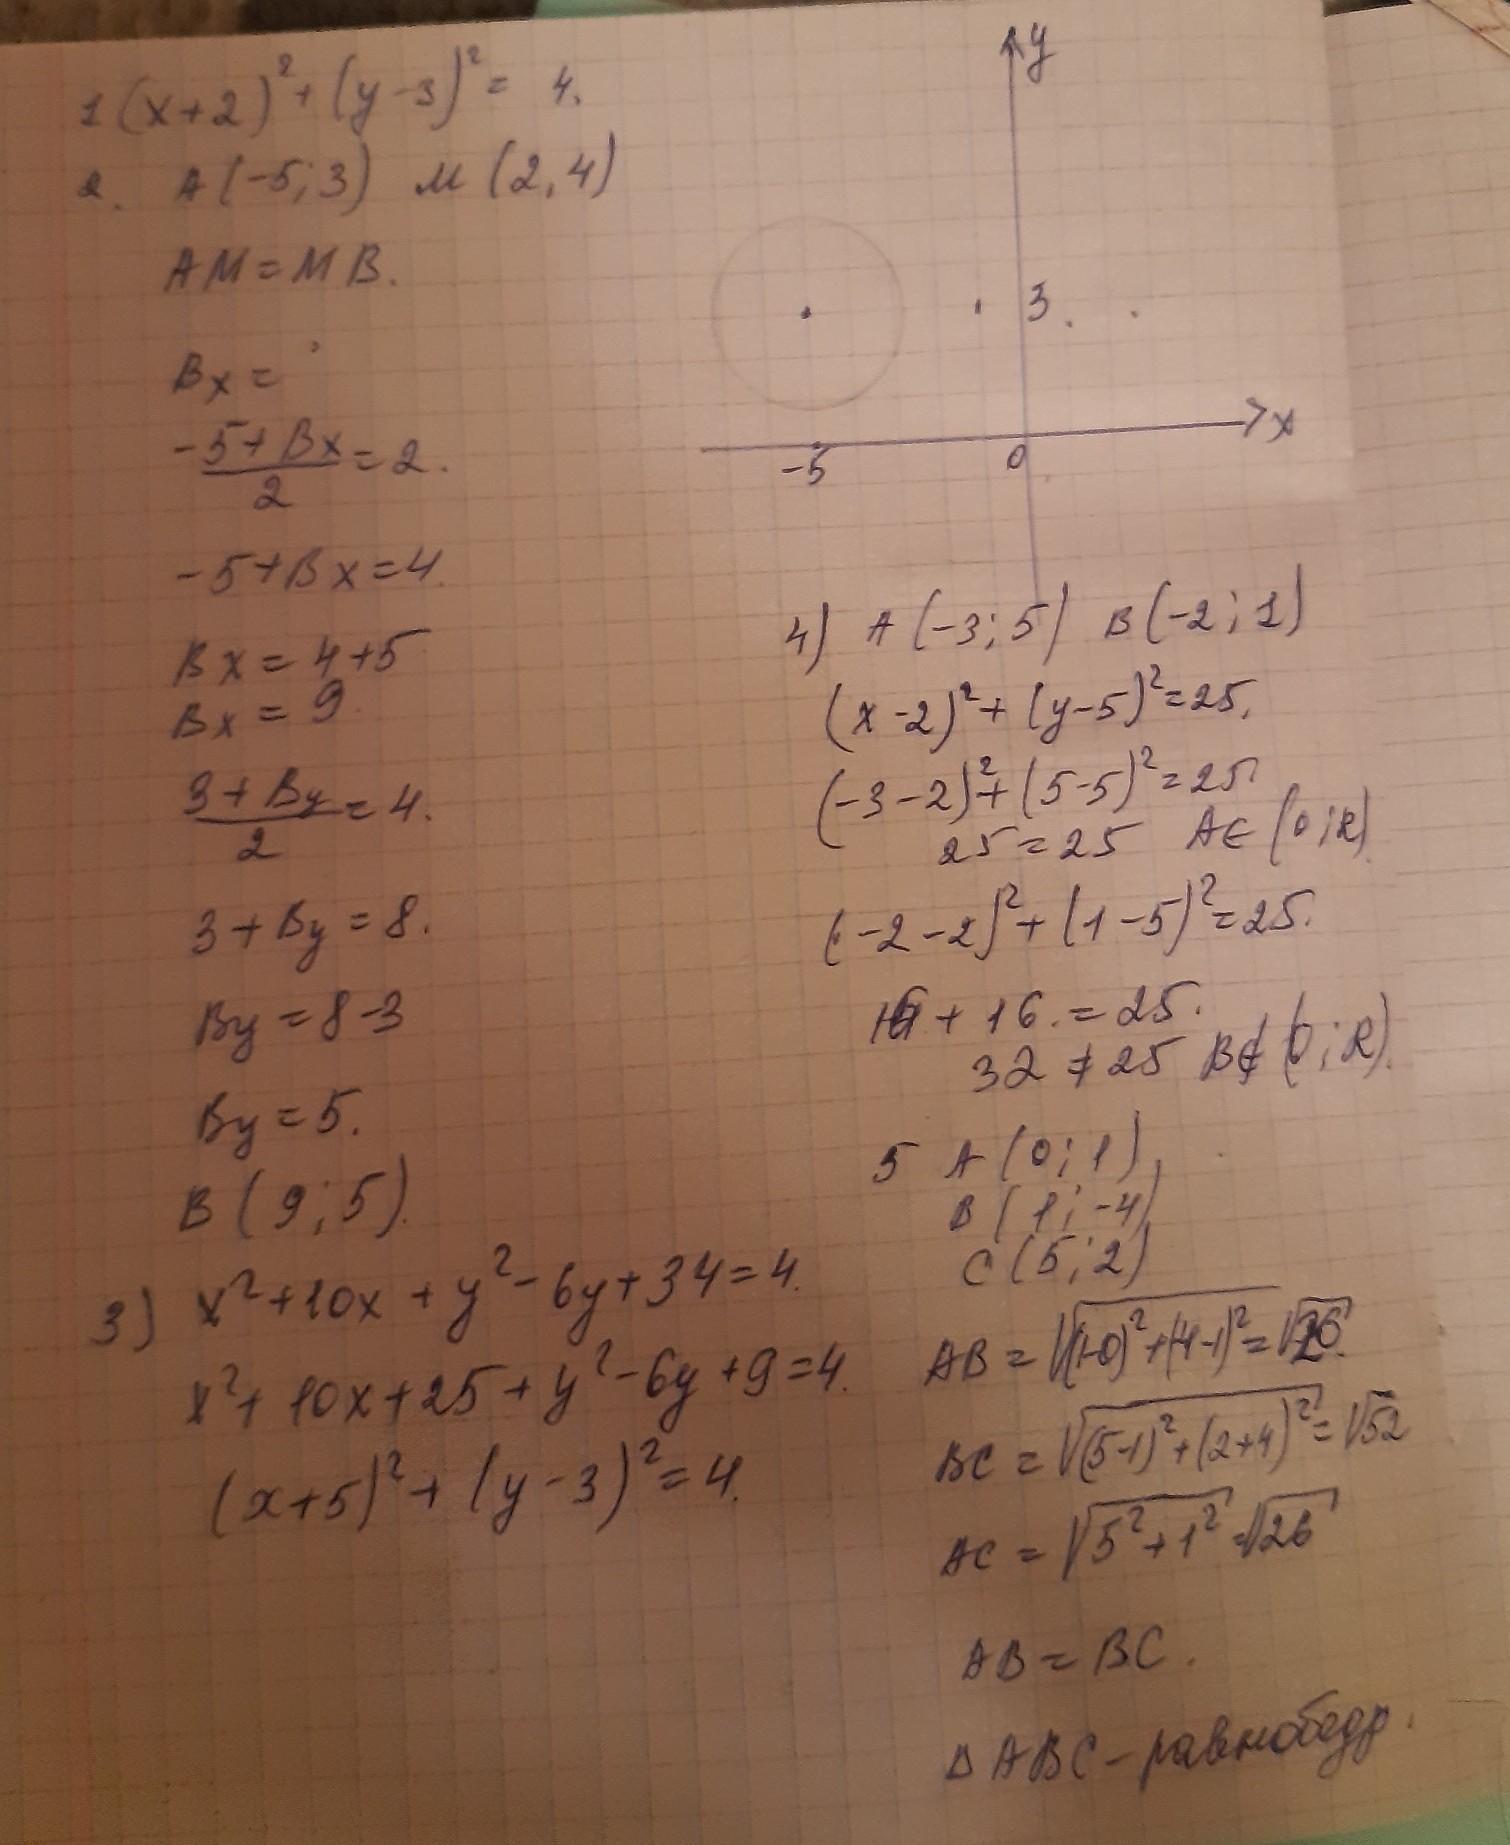 1 (x+2)² + (y-3)² = 4.
2. A(-5;3) M(2,4)
AM = MB.
Bx =
(-5+Bx)/2 = 2.
-5+Bx=4.
Bx = 4+5
Bx = 9.
(3+By)/2 = 4.
3+By = 8.
By = 8-3
By = 5.
B(9;5).
3) x²+10x+y²-6y+34=4.
x²+10x+25+y²-6y+9=4.
(x+5)²+(y-3)²=4.
y
3
x
-5
0
4) A(-3;5) B(-2;1)
(x-2)²+(y-5)²=25.
(-3-2)²+(5-5)²=25
25=25 A∈(0;R)
(-2-2)²+(1-5)²=25.
16+16.=25.
32≠25 B∉(0;R).
5 A(0;1)
B(1;-4)
C(5;2)
AB = √((1-0)²+(-4-1)²=√26.
BC = √(5-1)²+(2+4)²=√52
AC = √5²+1²=√26
AB = BC.
△ABC - равнобедр.